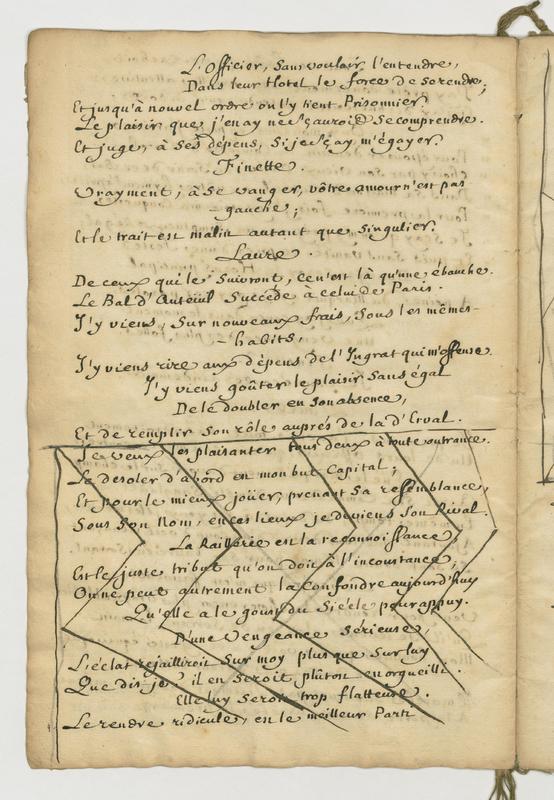 L'Officier, sans vouloir l'entendre,
Dans leur Hotel le force de se rendre,
Et jusqu'à nouvel ordre on l'y tient Prisonnier
Le plaisir que j'en ay ne sçauroit se comprendre.
Et juge, à ses dépens, si je sçay m'égayer.
Finette.
Vrayment, à se vanger, vôtre amour n'est pas
gauche;
Et le trait est malin autant que singulier.
Laure.
De ceux qui le suivront, ce n'est là qu'une ébauche.
Le Bal d'Auteuil succède à celui de Paris.
J'y viens, sur nouveaux frais, sous les mêmes
habits,
J'y viens rire aux dépens de l'Ingrat qui m'offense.
J'y viens goûter le plaisir sans égal
De le doubler en son absence,
Et de remplir son rôle auprés de la d'Erval.
Je veux les plaisanter tous deux à toute outrance.
Le desoler d'abord en mon but capital;
Et pour le mieux jouer, prenant sa ressemblance,
Sous son Nom, en ces lieux je deviens son Rival.
La Raillerie est la reconnoissance
Est le juste tribut qu'on doit à l'inconstance,
On ne peut autrement la confondre aujourd'huy
Qu'elle a le goust du Siécle pour appuy.
D'une Vengeance sérieuse,
L'éclat rejailliroit sur moy plus que sur luy
Que dis-je? il en seroit plûtost enorgueilli.
Elle luy seroit trop flatteuse.
Le rendre ridicule, en le meilleur Parti